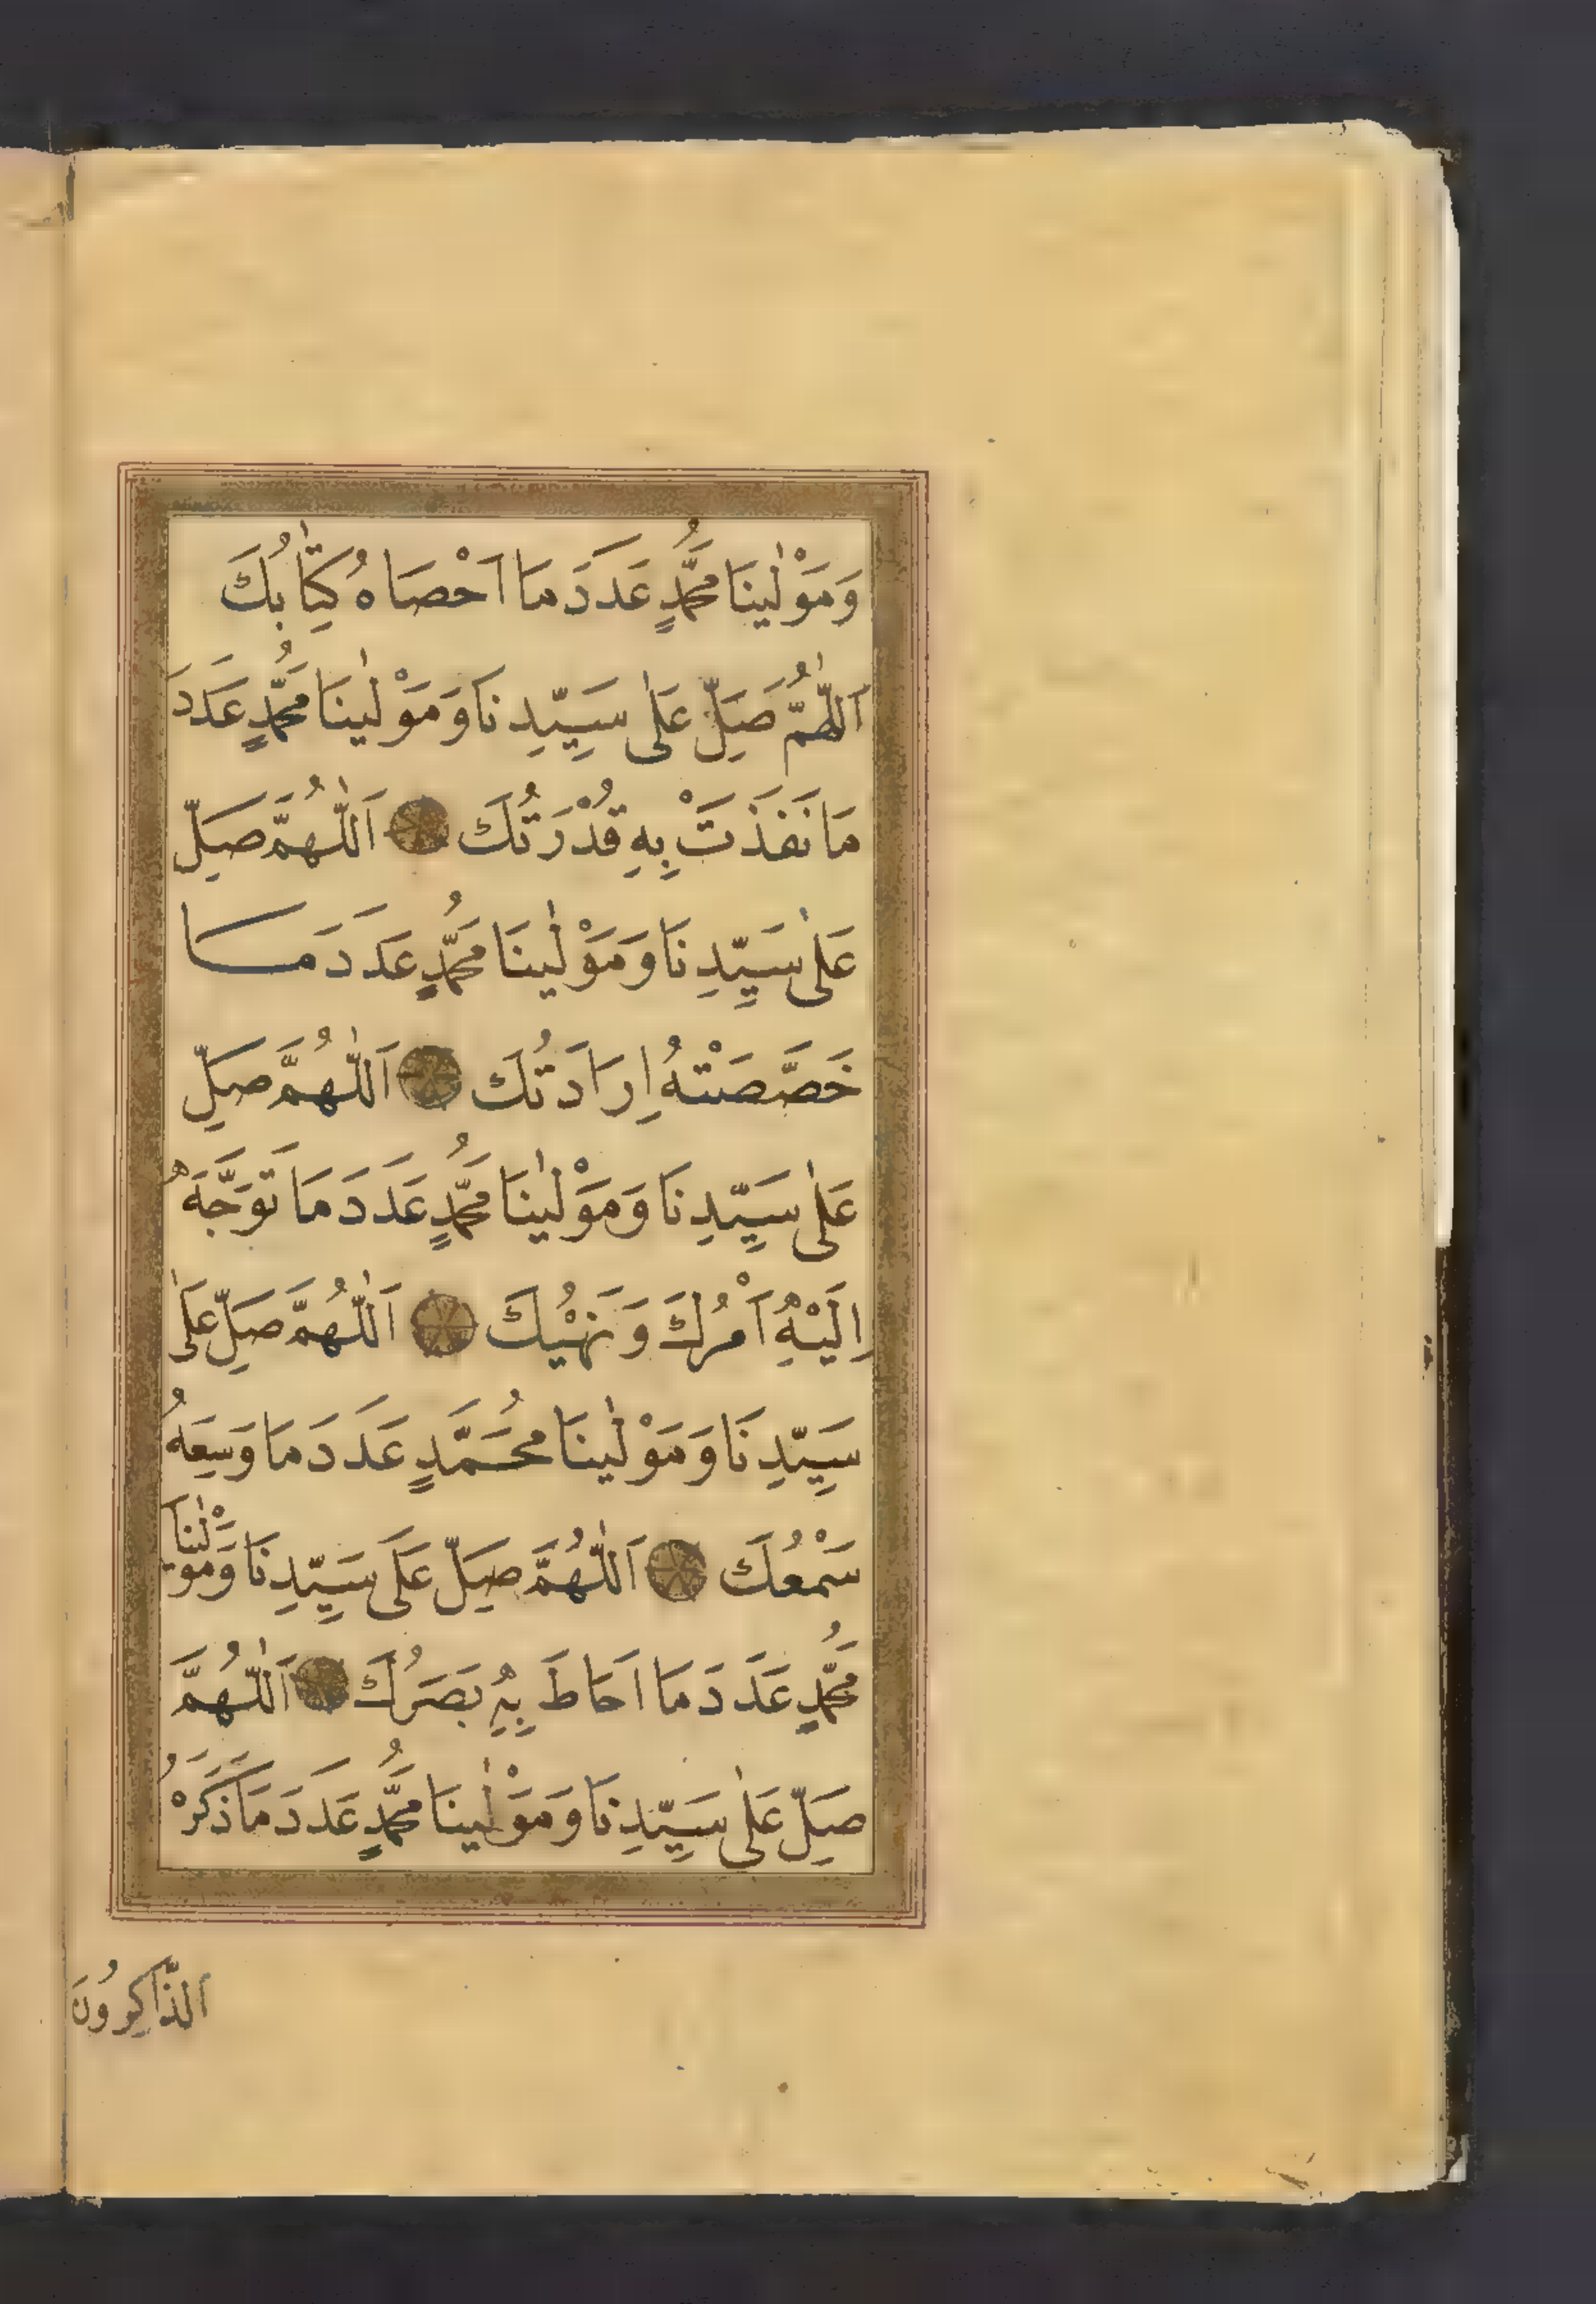 وَمَوْلٰينَا مُحَمَّدٍ عَدَدَ مَا اَحْصَاهُ كِتَابُكَ
اَللّٰهُمَّ صَلِّ عَلٰى سَيِّدِنَا وَمَوْلٰينَا مُحَمَّدٍ عَدَدَ
مَا نَفَذَتْ بِهِ قُدْرَتُكَ اَللّٰهُمَّ صَلِّ
عَلٰى سَيِّدِنَا وَمَوْلٰينَا مُحَمَّدٍ عَدَدَ مَا
خَصَّصَتْهُ اِرَادَتُكَ اَللّٰهُمَّ صَلِّ
عَلٰى سَيِّدِنَا وَمَوْلٰينَا مُحَمَّدٍ عَدَدَ مَا تَوَجَّهَ
اِلَيْهِ اَمْرُكَ وَنَهْيُكَ اَللّٰهُمَّ صَلِّ عَلٰى
سَيِّدِنَا وَمَوْلٰينَا مُحَمَّدٍ عَدَدَ مَا وَسِعَهُ
سَمْعُكَ اَللّٰهُمَّ صَلِّ عَلَى سَيِّدِنَا وَمَوْلٰينَا
مُحَمَّدٍ عَدَدَ مَا اَحَاطَ بِهِ بَصَرُكَ اَللّٰهُمَّ
صَلِّ عَلٰى سَيِّدِنَا وَمَوْلٰينَا مُحَمَّدٍ عَدَدَ مَا ذَكَرَهُ
الذَّاكِرُونَ